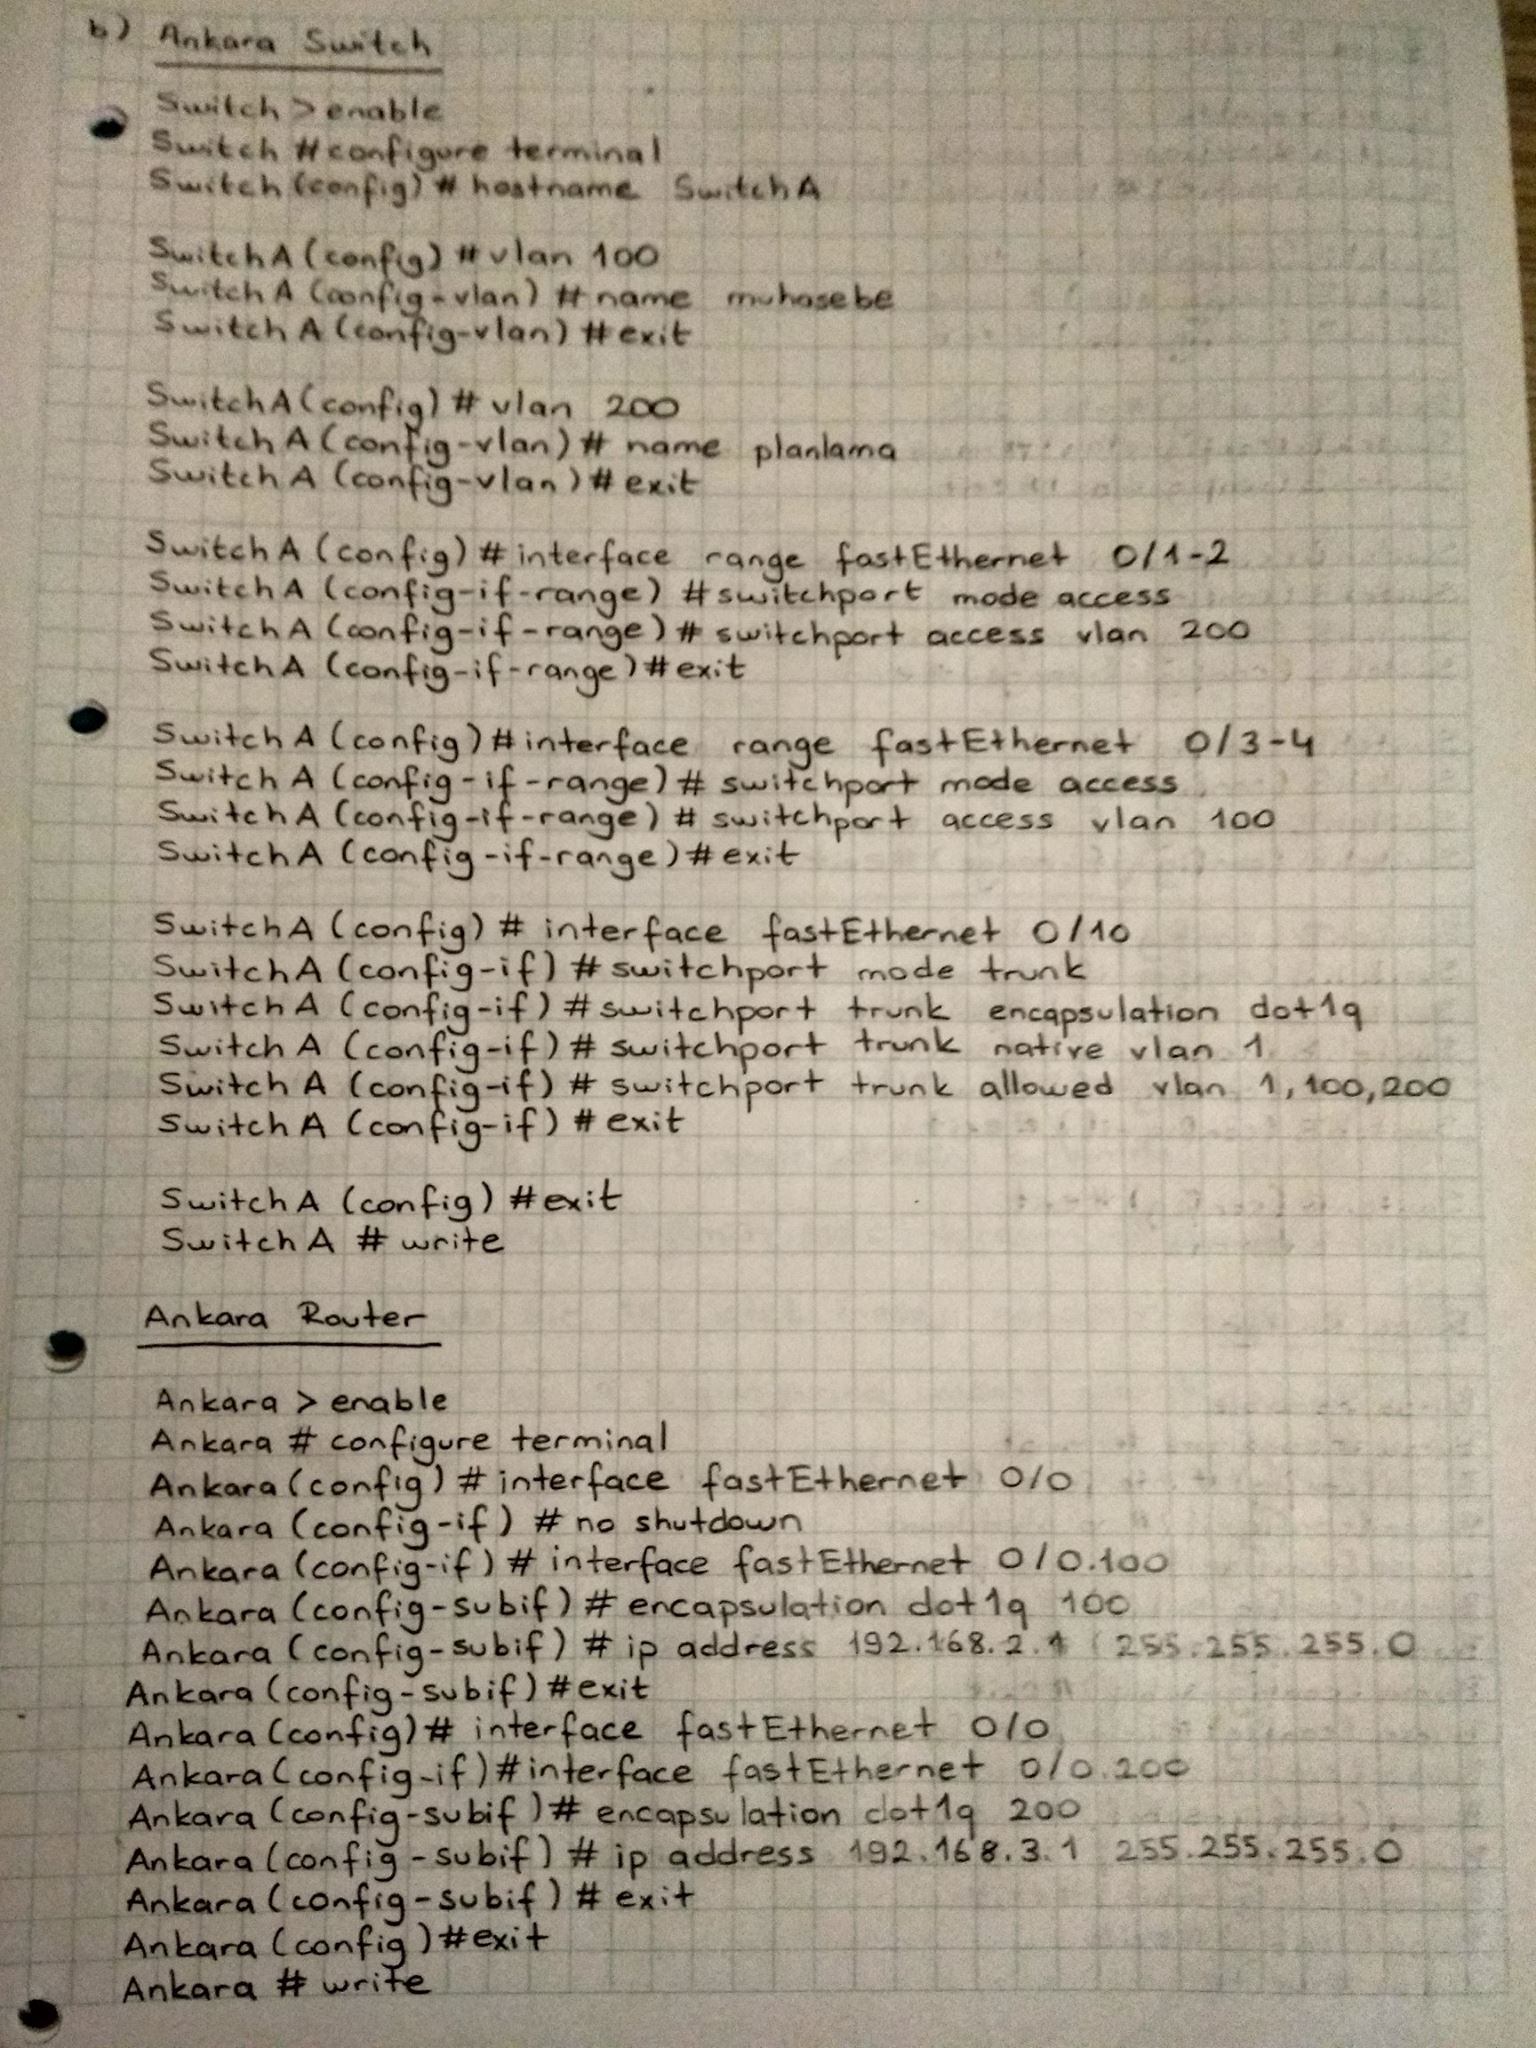 b) Ankara Switch
Switch > enable
Switch # configure terminal
Switch (config) # hostname SwitchA
SwitchA (config) # vlan 100
SwitchA (config-vlan) # name muhasebe
SwitchA (config-vlan) # exit
SwitchA (config) # vlan 200
SwitchA (config-vlan) # name planlama
SwitchA (config-vlan) # exit
SwitchA (config) # interface range fastEthernet 0/1-2
SwitchA (config-if-range) # switchport mode access
SwitchA (config-if-range) # switchport access vlan 200
SwitchA (config-if-range) # exit
SwitchA (config) # interface range fastEthernet 0/3-4
SwitchA (config-if-range) # switchport mode access
SwitchA (config-if-range) # switchport access vlan 100
SwitchA (config-if-range) # exit
SwitchA (config) # interface fastEthernet 0/10
SwitchA (config-if) # switchport mode trunk
SwitchA (config-if) # switchport trunk encapsulation dot1q
SwitchA (config-if) # switchport trunk native vlan 1
SwitchA (config-if) # switchport trunk allowed vlan 1,100,200
SwitchA (config-if) # exit
SwitchA (config) # exit
SwitchA # write
Ankara Router
Ankara > enable
Ankara # configure terminal
Ankara (config) # interface fastEthernet 0/0
Ankara (config-if) # no shutdown
Ankara (config-if) # interface fastEthernet 0/0.100
Ankara (config-subif) # encapsulation dot1q 100
Ankara (config-subif) # ip address 192.168.2.1 255.255.255.0
Ankara (config-subif) # exit
Ankara (config) # interface fastEthernet 0/0
Ankara (config-if) # interface fastEthernet 0/0.200
Ankara (config-subif) # encapsulation dot1q 200
Ankara (config-subif) # ip address 192.168.3.1 255.255.255.0
Ankara (config-subif) # exit
Ankara (config) # exit
Ankara # write